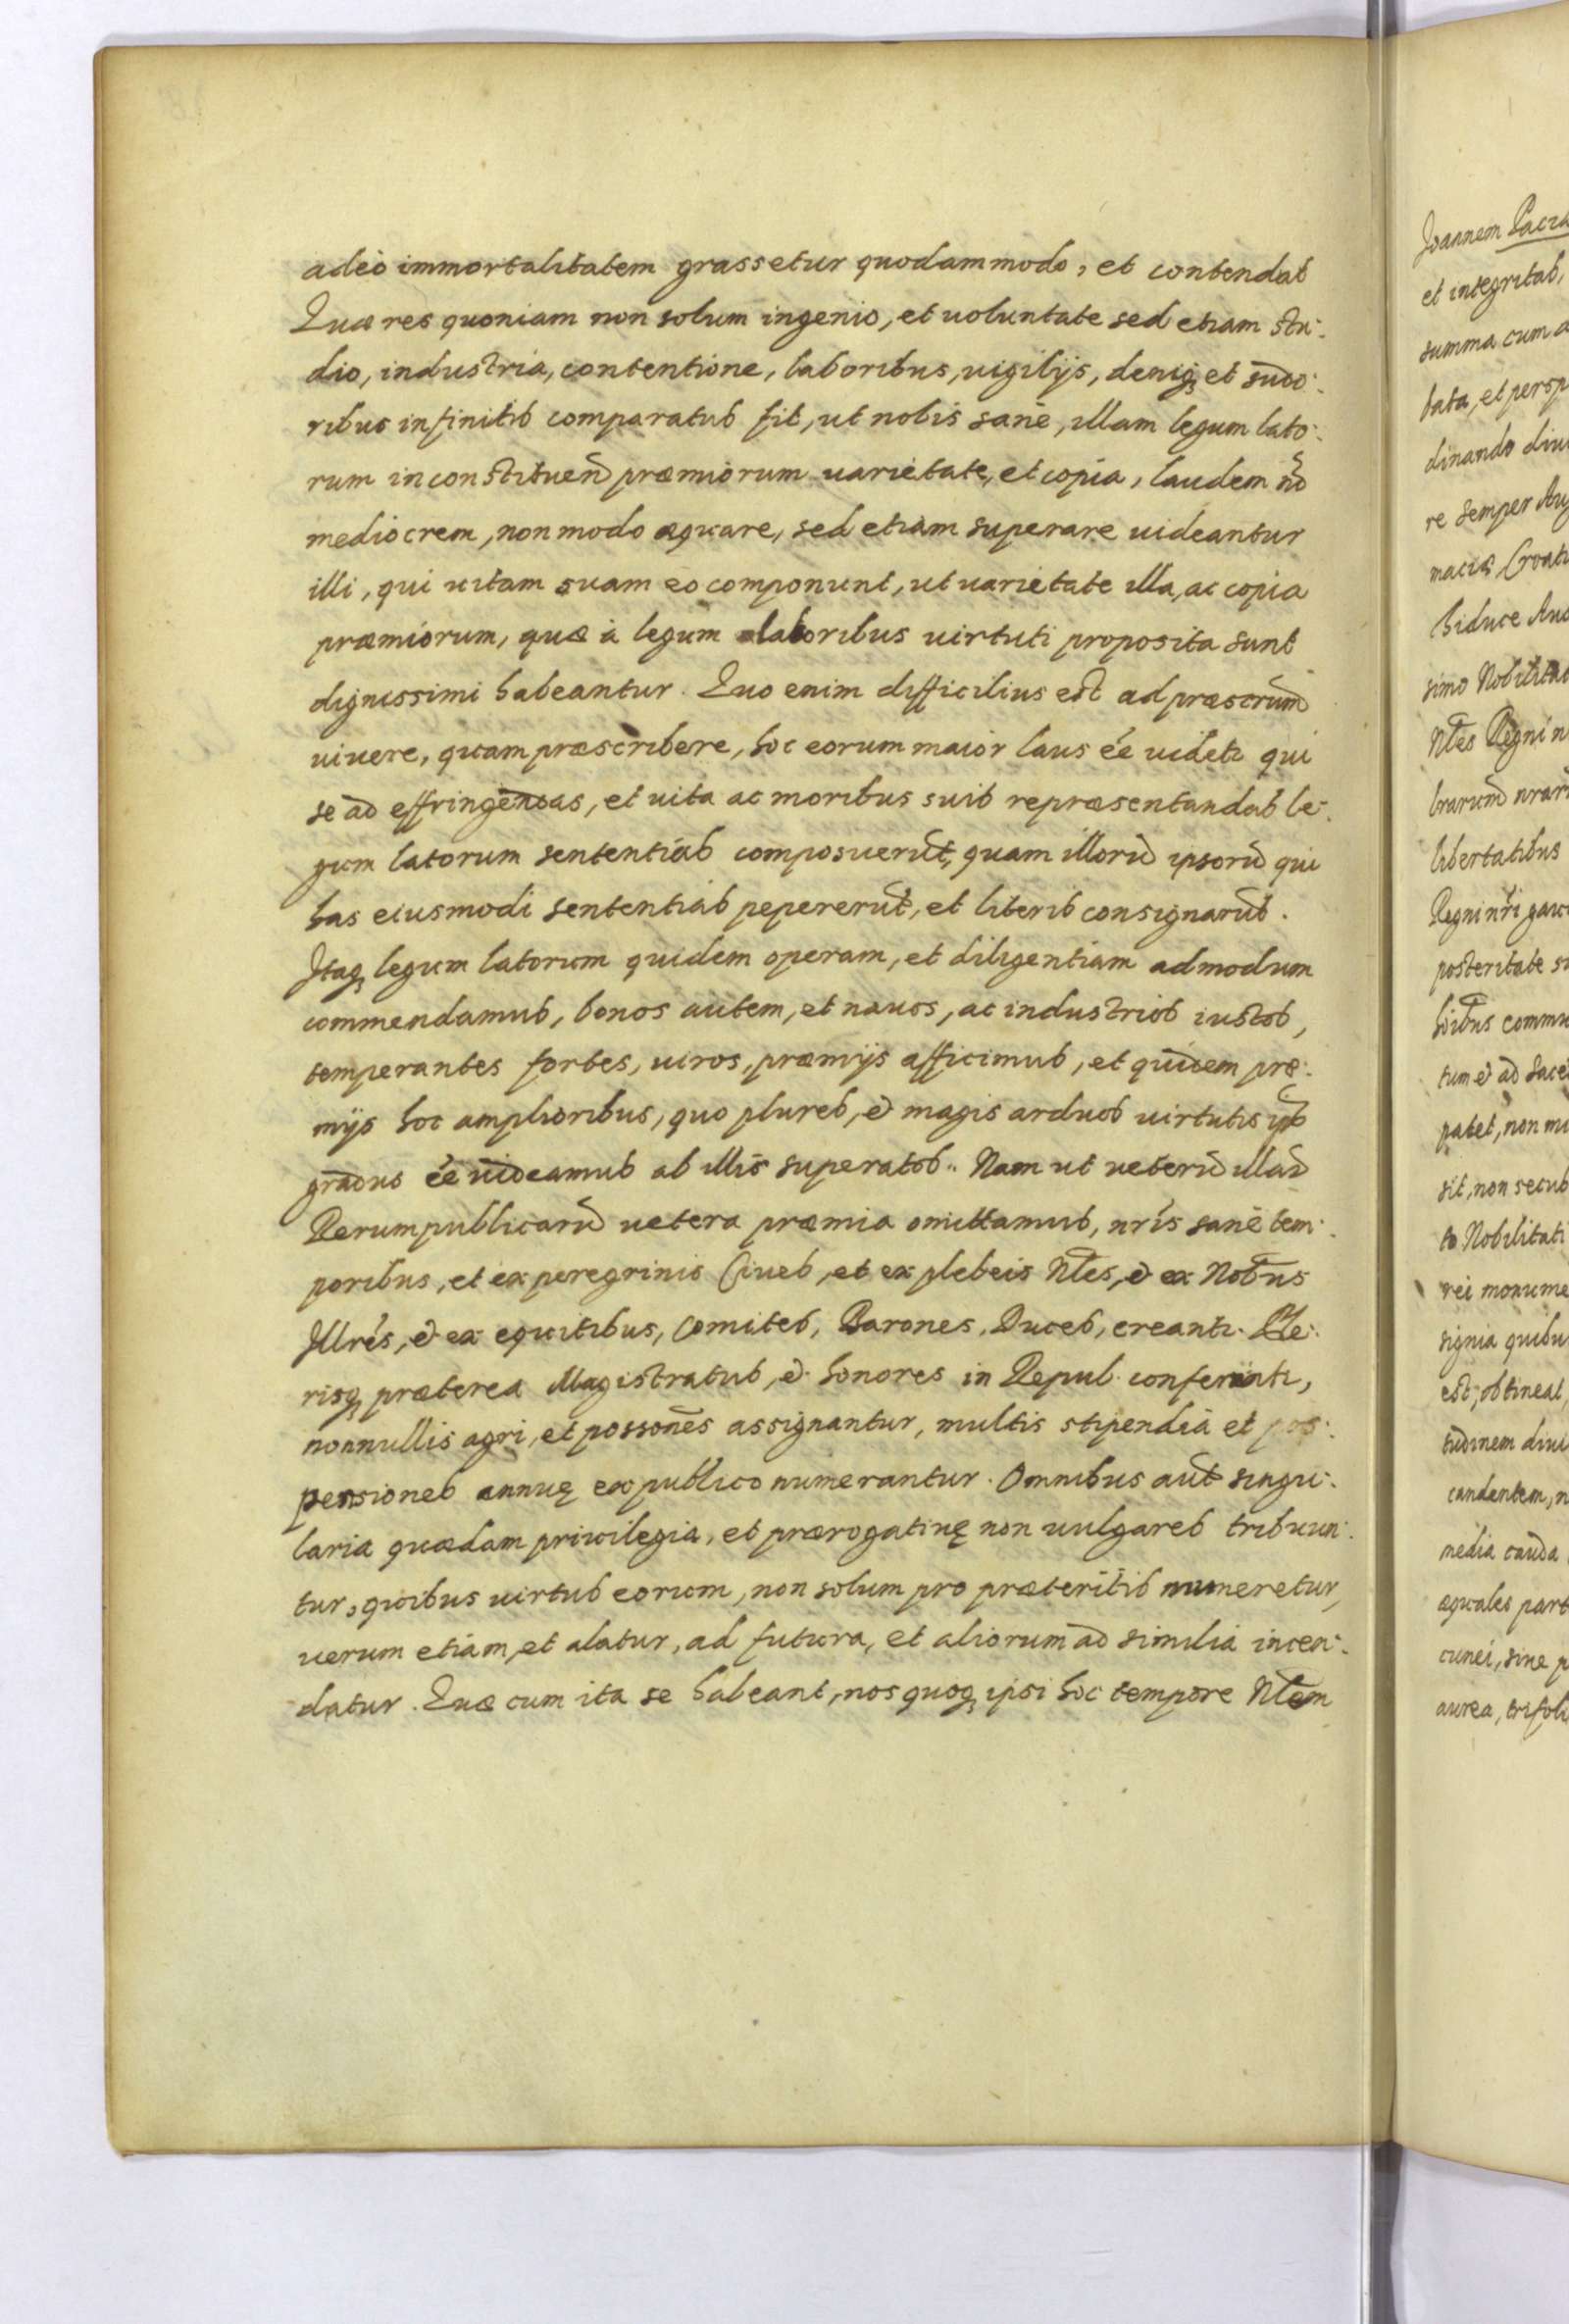 adeò immortalitatem grassetur quodammodo, et contendat
Quæ res quoniam non solum ingenio, et uoluntate sed etiam stu:
dio, industria, contentione, laboribus, uigilijs, deniq; et sudo:
ribus infinitis comparatus fit, ut nobis sanè, illam legum lato:
rum in constituend̃ præmiorum uarietate, et copia, laudem nõ
mediocrem, non modo æquare, sed etiam superare uideantur
illi, qui uitam suam eo componunt, ut uarietate illa, ac copia
præmiorum, quæ à legum latoribus uirtuti proposita sunt
dignissimi habeantur. Quo enim difficilius est ad præscrum̃
uiuere, quam præscribere, hoc eorum maior laus ée uidetr qui
se ad effringendas, et uita ac moribus suis repræsentandas le:
gum latorum sententias composuerũt, quam illorũ ipsorũ qui
has eiusmodi sententias pepererũt, et literis consignarũt.
Itaq; legum latorum quidem operam, et diligentiam admodum
commendamus, bonos autem, et nauos, ac industrios iustos,
temperantes fortes, uiros, præmijs afficimus, et quidem præ:
mijs hoc amplioribus, quo plures, & magis arduos uirtutis ips̃
gradus ée uideamus ab illis superatos. Nam ut ueterũ illarũ
Rerumpublicarũ uetera præmia omittamus, nrís sanè tem:
poribus, et ex peregrinis Ciues, et ex plebeis Nles, & ex Nobus
Illrés, & ex equitibus, Comites, Barones, Duces, creantr. Ple:
risq; præterea Magistratus, & honores in Repub. conferuntr,
nonnullis agri, et possones assignantur, multis stipendia et pos:
pensiones annuę ex publico numerantur. Omnibus aut̃ singu:
laria quædam priuilegia, et prærogatiuę non uulgares tribuun:
tur, quibus uirtus eorum, non solum pro præteritis muneretur,
uerum etiam, et alatur, ad futura, et aliorum ad similia incen:
datur. Quæ cum ita se habeant, nos quoq; ipsi hoc tempore Nlem
Joannem
et integritas,
summa cum
bata, et
dinando
re semper
maciæ
hiduce
simo
Regni
libertatibus
Regni nri
posteritate
tum & ad
patet, non
sit, non secus
to Nobilitati
rei
signia
est, obtineat,
candentem,
media cauda
æquales
cunei, sine
aurea,